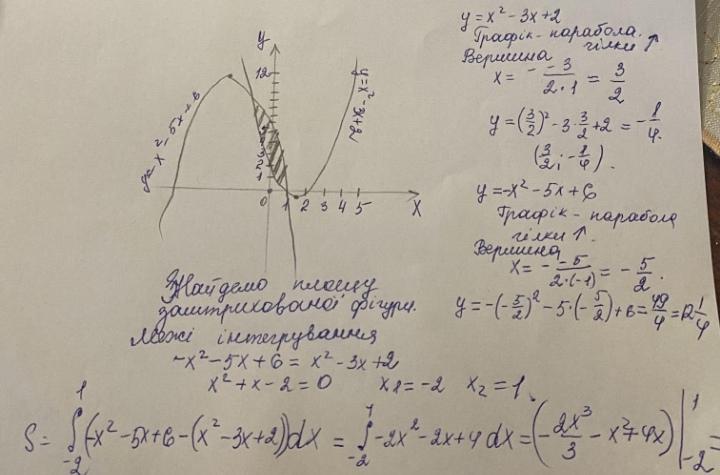 y = x² - 3x + 2
Графік - парабола.
гілки ↑
Вершина
x = - -3/2·1 = 3/2
y = (3/2)² - 3·3/2 + 2 = -1/4.
(3/2; -1/4).
y = -x² - 5x + 6
Графік - парабола
гілки ↑.
Вершина
x = - -5/2·(-1) = -5/2.
y = -(-5/2)² - 5·(-5/2) + 6 = 49/4 = 12 1/4
y
12
y = -x² - 5x + 6
y = x² - 3x + 2
3
2
1
0 1 2 3 4 5 x
Знайдемо площу
заштрихованої фігури.
Межі інтегрування
-x² - 5x + 6 = x² - 3x + 2
x² + x - 2 = 0 x₁ = -2 x₂ = 1.
S = ∫₋₂¹ (-x² - 5x + 6 - (x² - 3x + 2)) dx = ∫₋₂¹ -2x² - 2x + 4 dx = (-2x³/3 - x² + 4x) |₋₂¹ =